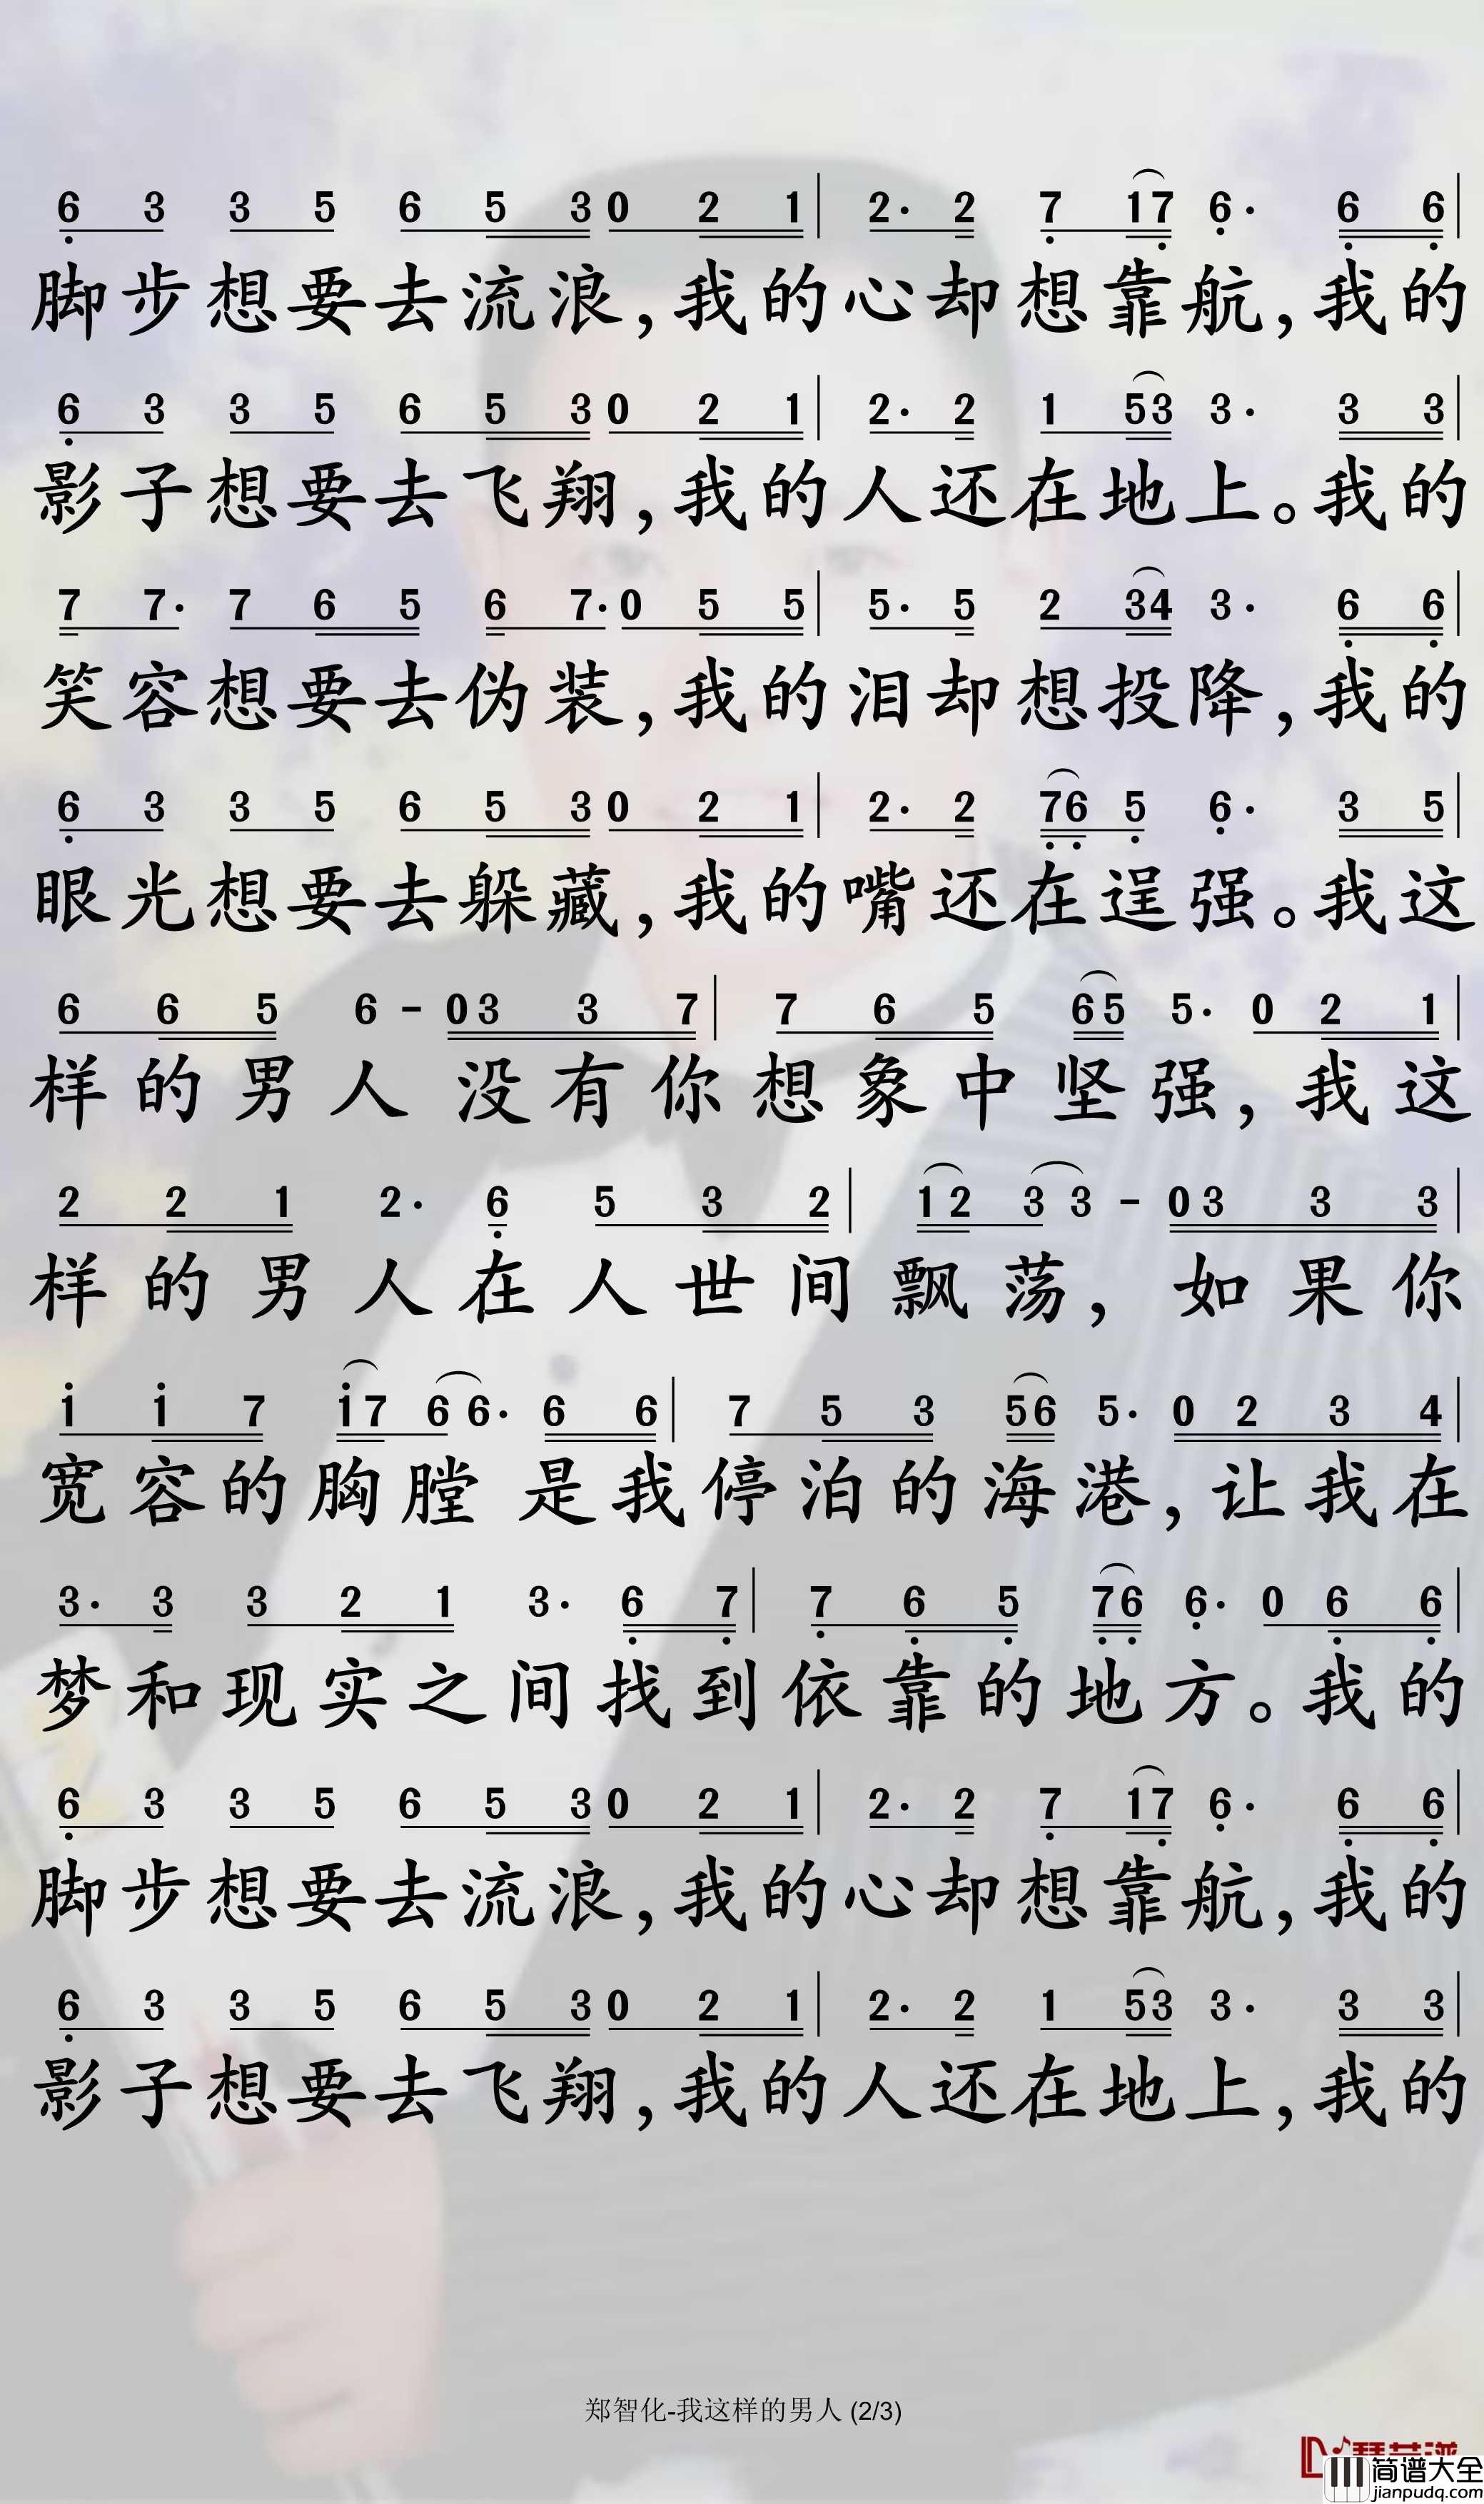 6 3 3 5 6 5 3 0 2 1 | 2· 2 7 1 7 6· 6 6 |
脚步想要去流浪,我的心却想靠航,我的
6 3 3 5 6 5 3 0 2 1 | 2· 2 1 5 3 3· 3 3 |
影子想要去飞翔,我的人还在地上。我的
7 7· 7 6 5 6 7· 0 5 5 | 5· 5 2 3 4 3· 6 6 |
笑容想要去伪装,我的泪却想投降,我的
6 3 3 5 6 5 3 0 2 1 | 2· 2 7 6 5 6· 3 5 |
眼光想要去躲藏,我的嘴还在逞强。我这
6 6 5 6 - 0 3 3 7 | 7 6 5 6 5 5· 0 2 1 |
样的男人没有你想象中坚强,我这
2 2 1 2· 6 5 3 2 | 1 2 3 3 - 0 3 3 3 |
样的男人在人世间飘荡,如果你
1 1 7 1 7 6 6· 6 6 | 7 5 3 5 6 5· 0 2 3 4 |
宽容的胸膛是我停泊的海港,让我在
3· 3 3 2 1 3· 6 7 | 7 6 5 7 6 6· 0 6 6 |
梦和现实之间找到依靠的地方。我的
6 3 3 5 6 5 3 0 2 1 | 2· 2 7 1 7 6· 6 6 |
脚步想要去流浪,我的心却想靠航,我的
6 3 3 5 6 5 3 0 2 1 | 2· 2 1 5 3 3· 3 3 |
影子想要去飞翔,我的人还在地上,我的
郑智化-我这样的男人 (2/3)
简谱大全
jianpudq.com